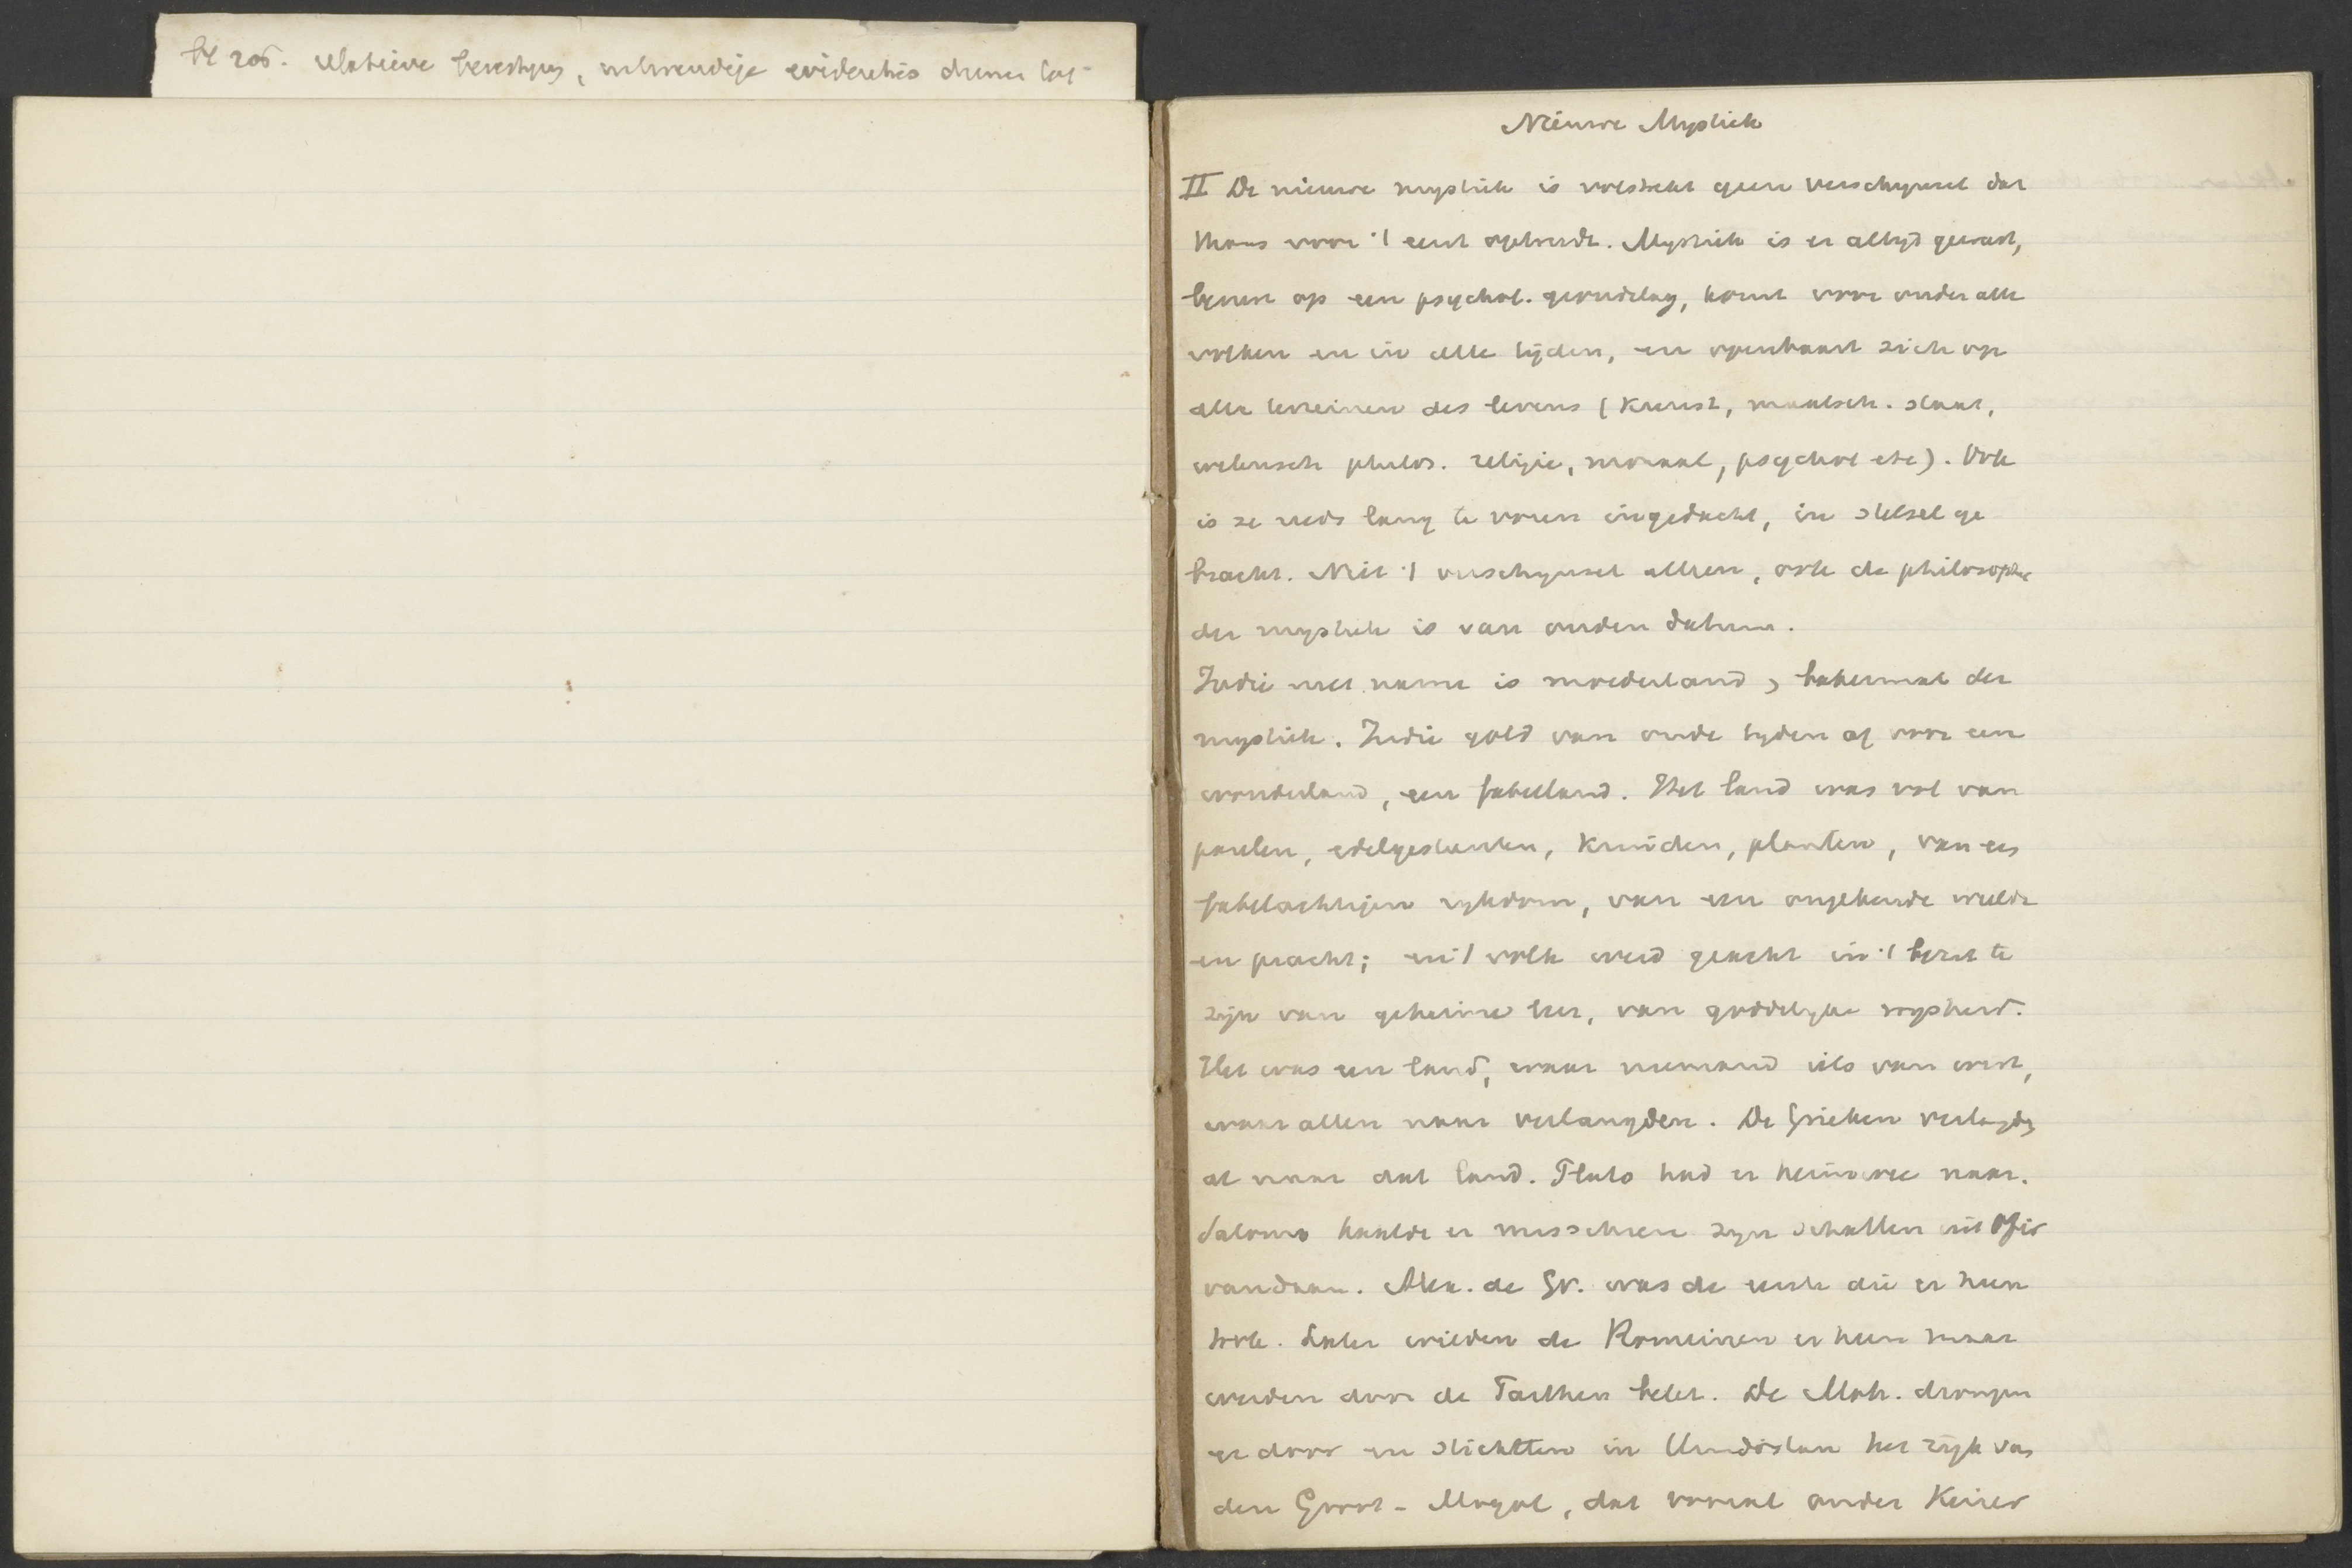 Nieuwe Mystiek
II De nieuwe mystiek is volstrekt geen verschijnsel dat
thans voor 't eerst optreedt. Mystiek is er altijd geweest,
berust op een psychol. grondslag, komt voor onder alle
volken en in alle tijden, en openbaart zich op
alle terreinen des levens (Kunst, maatsch. staat,
wetensch philos. religie, moraal, psychol etc). Ook
is ze reeds lang te voren ingedacht, in stelsel ge
bracht. Niet 't verschijnsel alleen, ook de philosophie
der mystiek is van ouden datum.
Indië met name is moederland, bakermat der
mystiek. Indië gold van oude tijden af voor een
wonderland, een fabelland. Het land was vol van
paarlen, edelgesteenten, Kruiden, planten, van een
fabelachtigen rijkdom, van een ongekende weelde
en pracht; en 't volk werd geacht in 't bezit te
zijn van geheime leer, van goddelijke wijsheid.
Het was een land, waar niemand iets van wist,
waar allen naar verlangden. De Grieken verlangden
al naar dat land. Plato had er heimwee naar.
Salomo haalde er misschien zijn schatten uit Ofir
vandaan. Alex. de Gr. was de eerste die er heen
trok. Later wilden de Romeinen er heen maar
werden door de Parthen belet. De Moh. drongen
er door en stichtten in Hindostan het rijk van
den Groot-Mogol, dat vooral onder Keizer